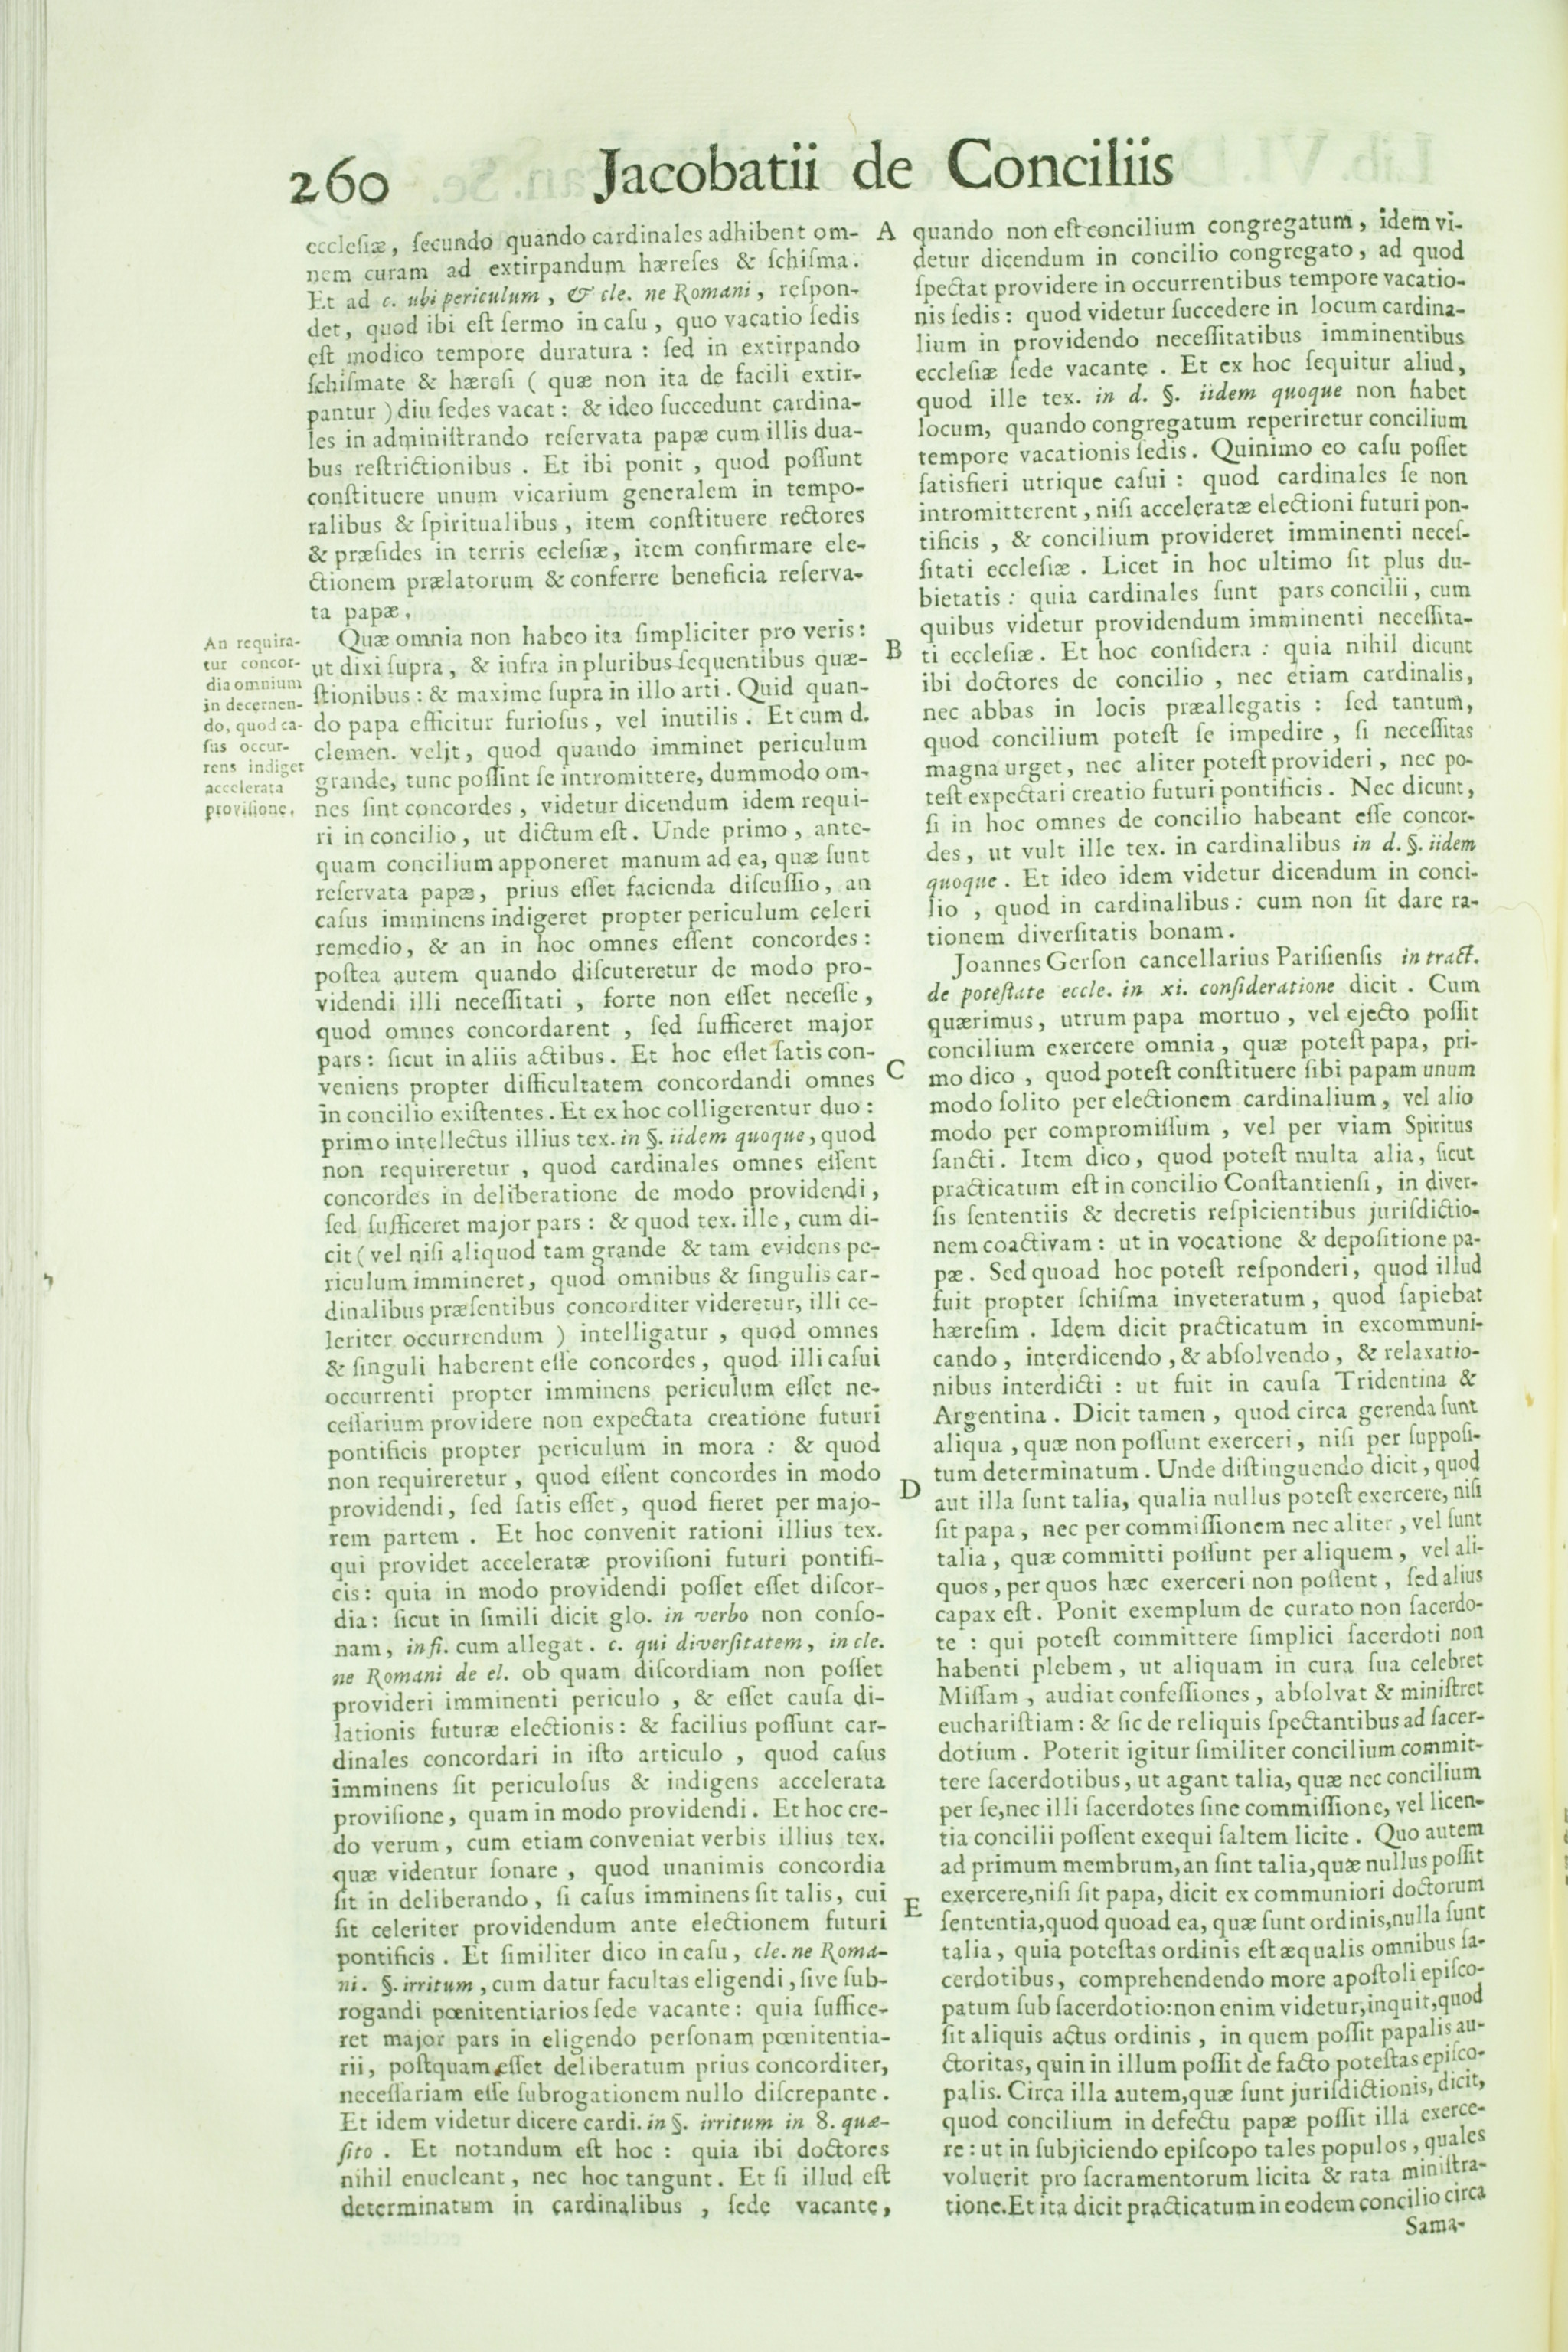 260
Jacobatii de Conciliis
ecclesiæ, ſecundo quando cardinales adhibent om-
nem curam ad extirpandum hæreſes & ſchiſma.
Et ad c. ubi periculum, & cle. ne Romani, reſpon-
det, quod ibi eſt ſermo in caſu, quo vacatio ſedis
eſt modico tempore duratura : ſed in extirpando
ſchiſmate & hæreſi ( quæ non ita de facili extir-
pantur ) diu ſedes vacat : & ideo ſuccedunt cardina-
les in adminiſtrando reſervata papæ cum illis dua-
bus reſtrictionibus . Et ibi ponit , quod poſſunt
conſtituere unum vicarium generalem in tempo-
ralibus & ſpiritualibus , item conſtituere rectores
& præſides in terris ecleſiæ, item confirmare ele-
ctionem prælatorum & conferre beneficia reſerva-
ta papæ.
Quæ omnia non habeo ita ſimpliciter pro veris:
ut dixi ſupra , & infra in pluribus ſequentibus quæ-
ſtionibus : & maxime ſupra in illo arti . Quid quan-
do papa efficitur furioſus , vel inutilis . Et cum d.
clemen. velit, quod quando imminet periculum
grande, tunc poſſint ſe intromittere, dummodo om-
nes ſint concordes , videtur dicendum idem requi-
ri in concilio , ut dictum eſt . Unde primo , ante-
quam concilium apponeret manum ad ea, quæ ſunt
reſervata papæ, prius eſſet facienda diſcuſſio, an
caſus imminens indigeret propter periculum celeri
remedio, & an in hoc omnes eſſent concordes :
poſtea autem quando diſcuteretur de modo pro-
videndi illi neceſſitati , forte non eſſet neceſſe ,
quod omnes concordarent , ſed ſufficeret major
pars : ſicut in aliis actibus . Et hoc eſſet ſatis con-
veniens propter difficultatem concordandi omnes
in concilio exiſtentes . Et ex hoc colligerentur duo :
primo intellectus illius tex. in §. iidem quoque, quod
non requireretur , quod cardinales omnes eſſent
concordes in deliberatione de modo providendi ,
ſed ſufficeret major pars : & quod tex. ille, cum di-
cit ( vel niſi aliquod tam grande & tam evidens pe-
riculum immineret, quod omnibus & ſingulis car-
dinalibus præſentibus concorditer videretur, illi ce-
leriter occurrendum ) intelligatur , quod omnes
& ſinguli haberent eſſe concordes, quod illi caſui
occurrenti propter imminens periculum eſſet ne-
ceſſarium providere non expectata creatione futuri
pontificis propter periculum in mora : & quod
non requireretur , quod eſſent concordes in modo
providendi, ſed ſatis eſſet , quod fieret per majo-
rem partem . Et hoc convenit rationi illius tex.
qui providet acceleratæ proviſioni futuri pontifi-
cis : quia in modo providendi poſſet eſſet diſcor-
dia : ſicut in ſimili dicit glo. in verbo non conſo-
nam, in fi. cum allegat . c. qui diverſitatem, in cle.
ne Romani de el. ob quam diſcordiam non poſſet
provideri imminenti periculo , & eſſet cauſa di-
lationis futuræ electionis : & facilius poſſunt car-
dinales concordari in iſto articulo , quod caſus
imminens ſit periculoſus & indigens accelerata
proviſione, quam in modo providendi . Et hoc cre-
do verum , cum etiam conveniat verbis illius tex.
quæ videntur ſonare , quod unanimis concordia
ſit in deliberando , ſi caſus imminens ſit talis, cui
ſit celeriter providendum ante electionem futuri
pontificis . Et ſimiliter dico in caſu, cle. ne Roma-
ni. §. irritum , cum datur facultas eligendi , ſive ſub-
rogandi pœnitentiarios ſede vacante : quia ſuffice-
ret major pars in eligendo perſonam pœnitentia-
rii, poſtquam eſſet deliberatum prius concorditer,
neceſſariam eſſe ſubrogationem nullo diſcrepante .
Et idem videtur dicere cardi. in §. irritum in 8. quæ-
ſito . Et notandum eſt hoc : quia ibi doctores
nihil enucleant , nec hoc tangunt . Et ſi illud eſt
determinatum in cardinalibus , ſede vacante ,
An requira-
tur concor-
dia omnium
in decernen-
do, quod ca-
ſus occur-
rens indiget
accelerata
proviſione.
A
B
C
D
E
quando non eſt concilium congregatum, idem vi-
detur dicendum in concilio congregato , ad quod
ſpectat providere in occurrentibus tempore vacatio-
nis ſedis : quod videtur ſuccedere in locum cardina-
lium in providendo neceſſitatibus imminentibus
eccleſiæ ſede vacante . Et ex hoc ſequitur aliud,
quod ille tex. in d. §. iidem quoque non habet
locum, quando congregatum reperiretur concilium
tempore vacationis ſedis . Quinimo eo caſu poſſet
ſatisfieri utrique caſui : quod cardinales ſe non
intromitterent , niſi acceleratæ electioni futuri pon-
tificis , & concilium provideret imminenti neceſ-
ſitati eccleſiæ . Licet in hoc ultimo ſit plus du-
bietatis : quia cardinales ſunt pars concilii , cum
quibus videtur providendum imminenti neceſſita-
ti eccleſiæ. Et hoc conſidera : quia nihil dicunt
ibi doctores de concilio , nec etiam cardinalis,
nec abbas in locis præallegatis : ſed tantum,
quod concilium poteſt ſe impedire , ſi neceſſitas
magna urget , nec aliter poteſt provideri , nec po-
teſt expectari creatio futuri pontificis . Nec dicunt,
ſi in hoc omnes de concilio habeant eſſe concor-
des, ut vult ille tex. in cardinalibus in d. §. iidem
quoque . Et ideo idem videtur dicendum in conci-
lio , quod in cardinalibus : cum non ſit dare ra-
tionem diverſitatis bonam .
Joannes Gerſon cancellarius Pariſienſis in tract.
de poteſtate eccle. in xi. conſideratione dicit . Cum
quærimus, utrum papa mortuo , vel ejecto poſſit
concilium exercere omnia , quæ poteſt papa, pri-
mo dico , quod poteſt conſtituere ſibi papam unum
modo ſolito per electionem cardinalium , vel alio
modo per compromiſſum , vel per viam Spiritus
ſancti . Item dico, quod poteſt multa alia, ſicut
practicatum eſt in concilio Conſtantienſi, in diver-
ſis ſententiis & decretis reſpicientibus juriſdictio-
nem coactivam : ut in vocatione & depoſitione pa-
pæ. Sed quoad hoc poteſt reſponderi, quod illud
fuit propter ſchiſma inveteratum, quod ſapiebat
hæreſim . Idem dicit practicatum in excommuni-
cando, interdicendo, & abſolvendo, & relaxatio-
nibus interdicti : ut fuit in cauſa Tridentina &
Argentina . Dicit tamen , quod circa gerenda ſunt
aliqua , quæ non poſſunt exerceri , niſi per ſuppoſi-
tum determinatum . Unde diſtinguendo dicit, quod
aut illa ſunt talia, qualia nullus poteſt exercere, niſi
ſit papa, nec per commiſſionem nec aliter , vel ſunt
talia, quæ committi poſſunt per aliquem, vel ali-
quos , per quos hæc exerceri non poſſent , ſed alius
capax eſt . Ponit exemplum de curato non ſacerdo-
te : qui poteſt committere ſimplici ſacerdoti non
habenti plebem , ut aliquam in cura ſua celebret
Miſſam , audiat confeſſiones , abſolvat & miniſtret
euchariſtiam : & ſic de reliquis ſpectantibus ad ſacer-
dotium . Poterit igitur ſimiliter concilium commit-
tere ſacerdotibus , ut agant talia, quæ nec concilium
per ſe,nec illi ſacerdotes ſine commiſſione, vel licen-
tia concilii poſſent exequi ſaltem licite . Quo autem
ad primum membrum,an ſint talia,quæ nullus poſſit
exercere,niſi ſit papa, dicit ex communiori doctorum
ſententia,quod quoad ea, quæ ſunt ordinis,nulla ſunt
talia, quia poteſtas ordinis eſt æqualis omnibus ſa-
cerdotibus, comprehendendo more apoſtoli epiſco-
patum ſub ſacerdotio:non enim videtur,inquit,quod
ſit aliquis actus ordinis , in quem poſſit papalis au-
ctoritas, quin in illum poſſit de facto poteſtas epiſco-
palis. Circa illa autem,quæ ſunt juriſdictionis, dicit,
quod concilium in defectu papæ poſſit illa exerce-
re : ut in ſubjiciendo epiſcopo tales populos , quales
voluerit pro ſacramentorum licita & rata miniſtra-
tione.Et ita dicit practicatum in eodem concilio circa
Sama-